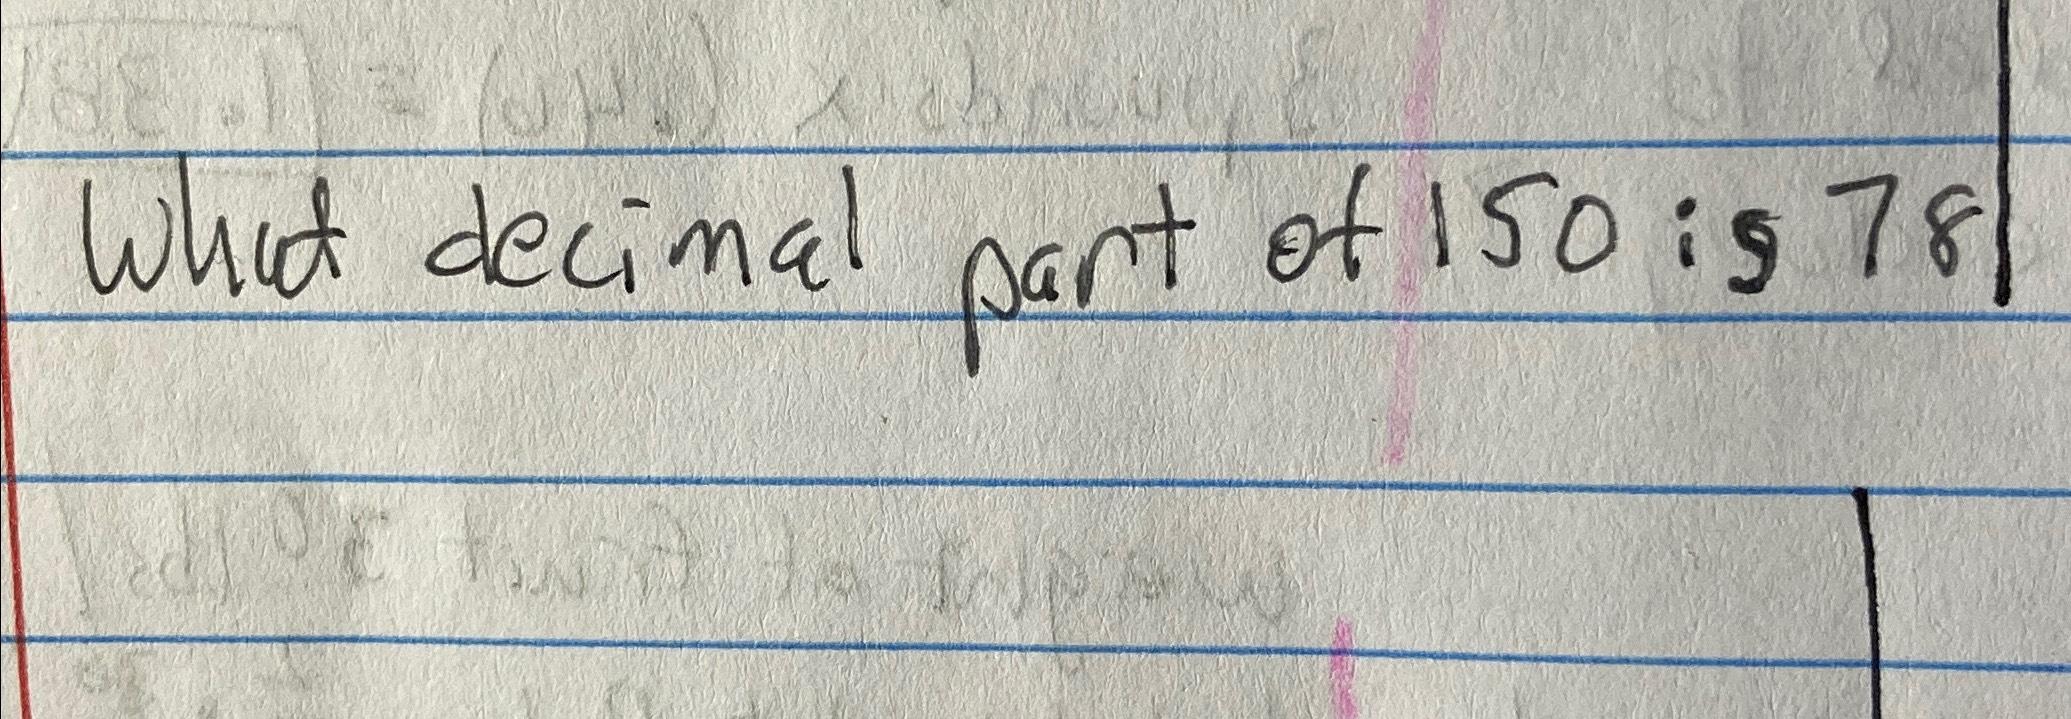 What decimal part of 150 is 78